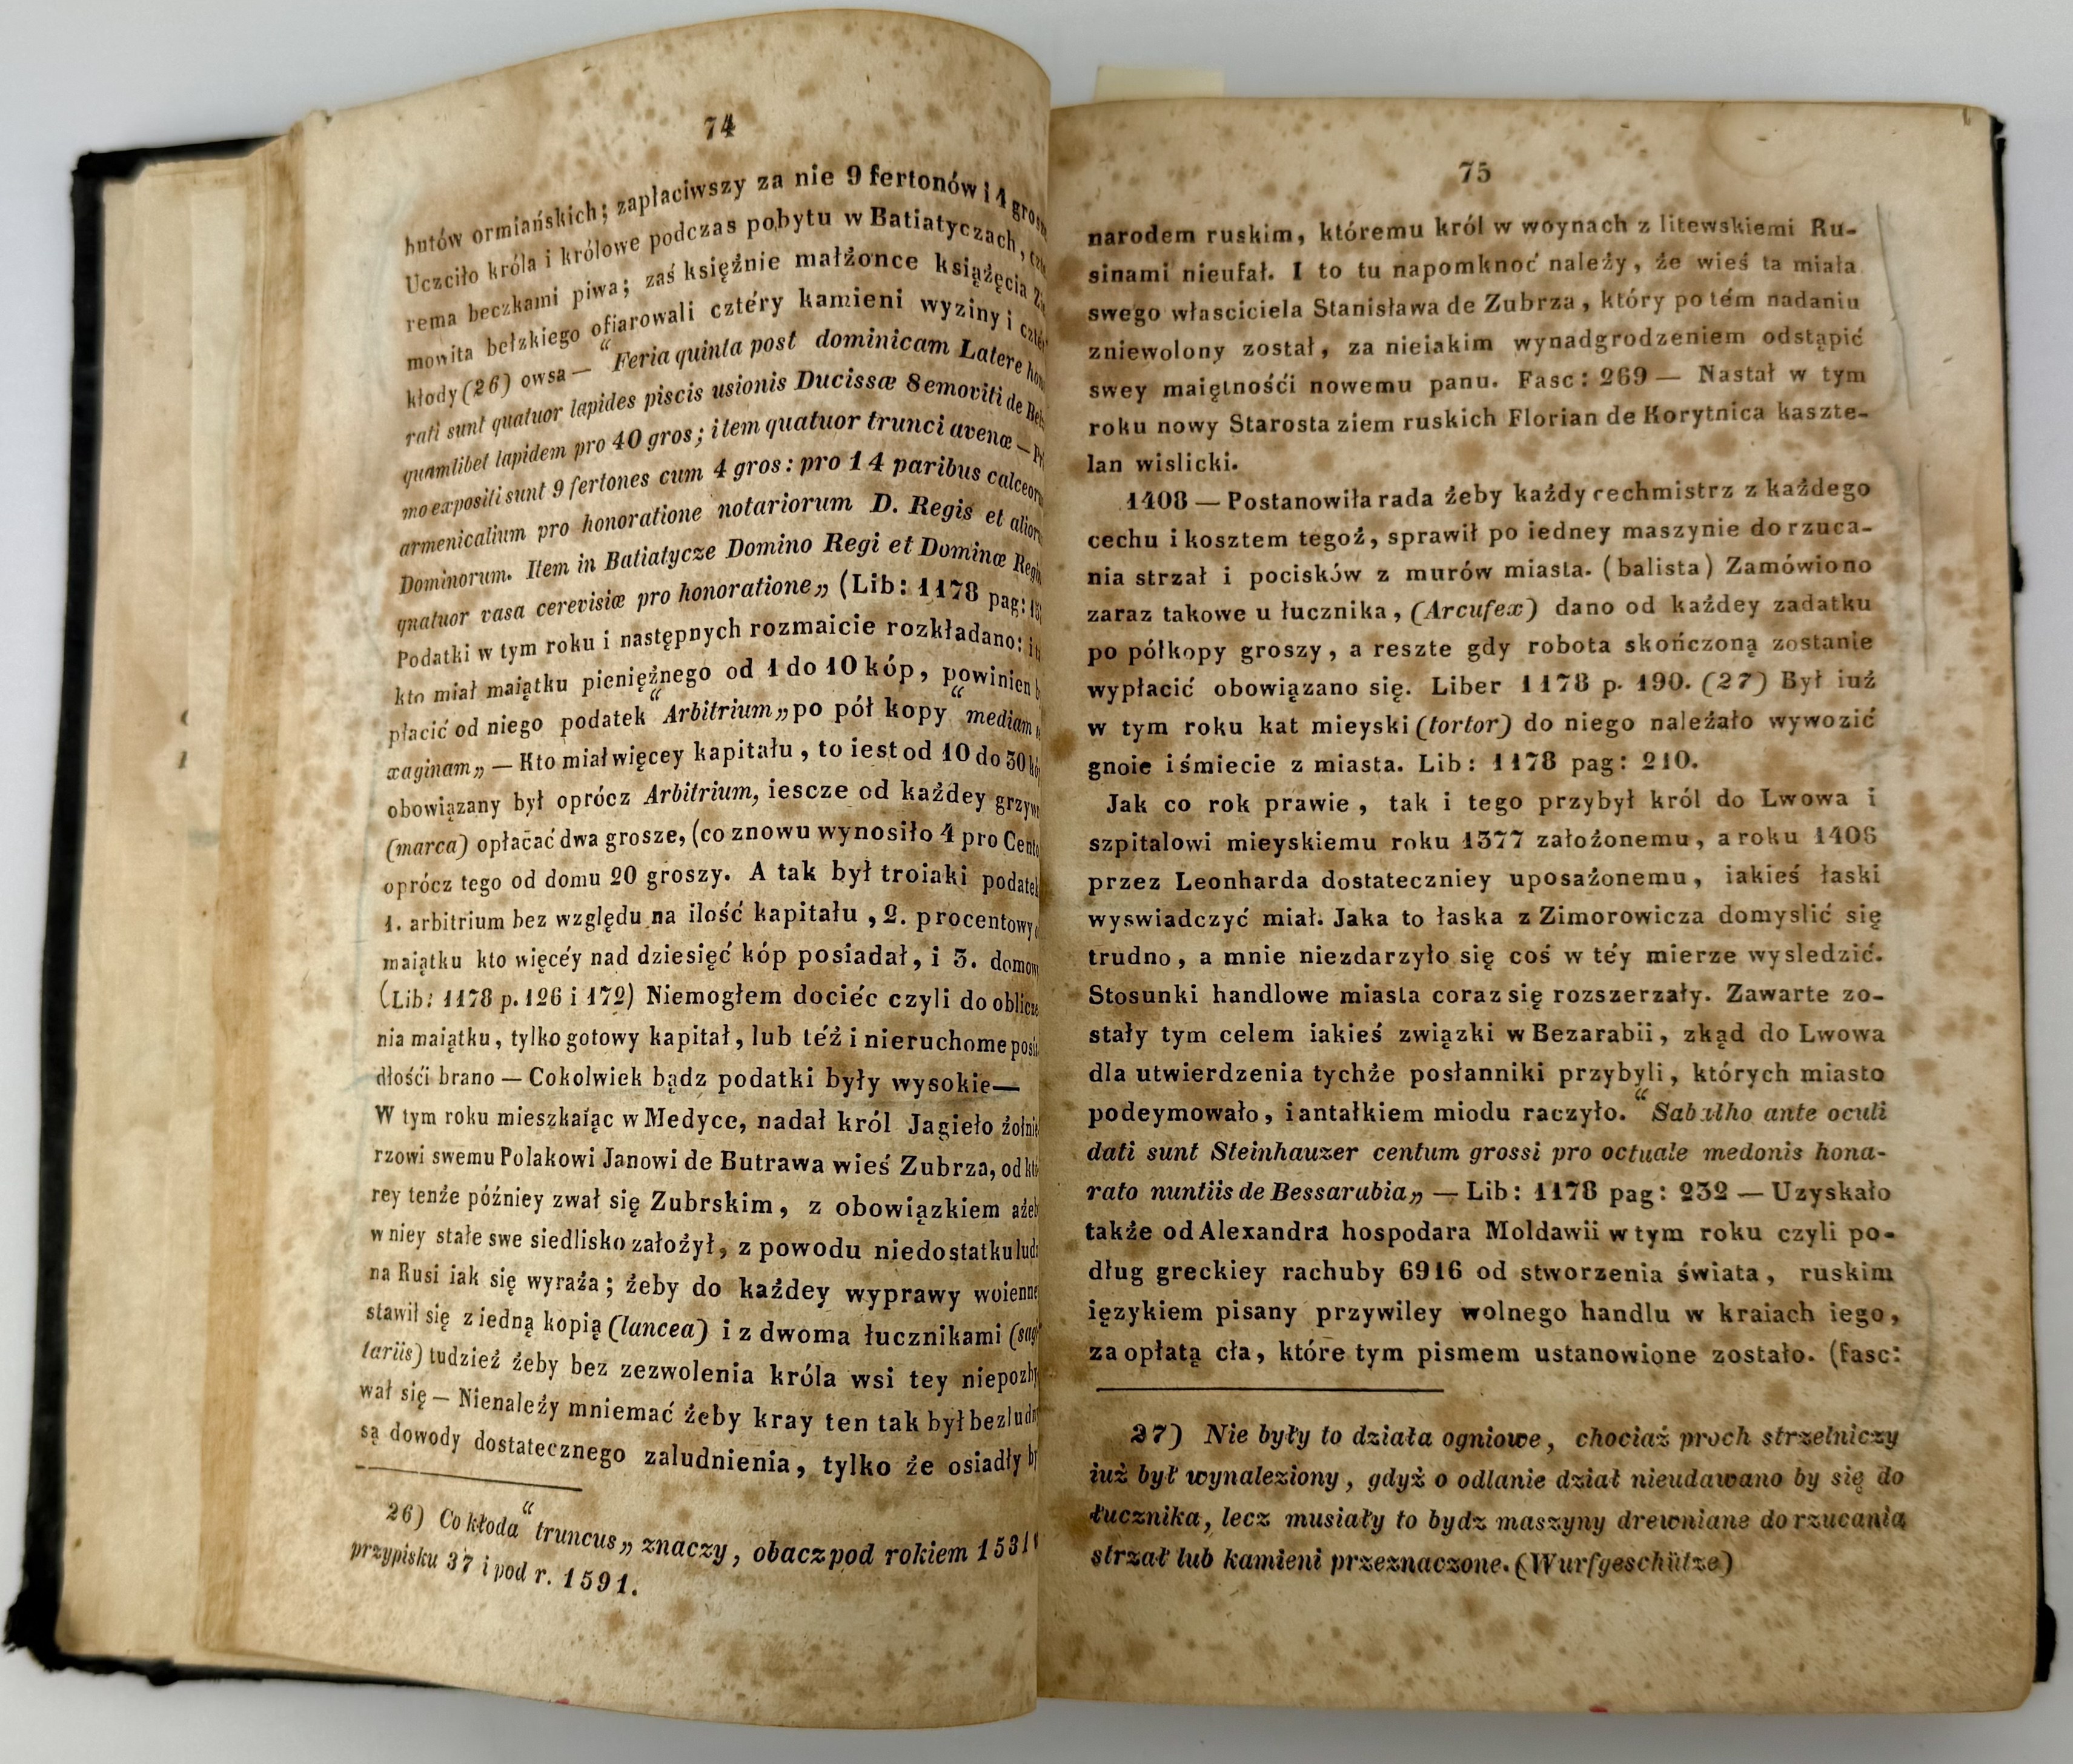 74
butów ormiańskich; zapłaciwszy za nie 9 fertonów i 4
Uczciło króla i królowe podczas pobytu w Batiatyczach,
rema beczkami piwa; zaś księżnie małżonce książęcia
mowita bełzkiego ofiarowali cztéry kamieni wyziny i
kłody (26) owsa — “Feria quinta post dominicam Latere
rati sunt quatuor lapides piscis usionis Ducissæ Semoviti de
quamlibet lapidem pro 40 gros; item quatuor trunci avenæ —
mo expositi sunt 9 fertones cum 4 gros: pro 14 paribus
armenicalium pro honoratione notariorum D. Regis et
Dominorum. Item in Batiatycze Domino Regi et Dominæ
quatuor vasa cerevisiæ pro honoratione„ (Lib: 1178 pag:
Podatki w tym roku i następnych rozmaicie rozkładano:
kto miał maiątku pieniężnego od 1 do 10 kóp, powinien
płacić od niego podatek “Arbitrium„ po pół kopy “mediam
xaginam„ — Kto miał więcey kapitału, to iest od 10 do 30
obowiązany był oprócz Arbitrium, iescze od każdey
(marca) opłacać dwa grosze, (co znowu wynosiło 4 pro
oprócz tego od domu 20 groszy. A tak był troiaki
1. arbitrium bez względu na ilość kapitału, 2. procentowy
maiątku kto więcéy nad dziesięć kóp posiadał, i 3.
(Lib: 1178 p. 126 i 172) Niemogłem dociéc czyli do
nia maiątku, tylko gotowy kapitał, lub téż i nieruchome
dłości brano — Cokolwiek bądz podatki były wysokie—
W tym roku mieszkaiąc w Medyce, nadał król Jagieło
rzowi swemu Polakowi Janowi de Butrawa wieś Zubrza, od
rey tenże późniey zwał się Zubrskim, z obowiązkiem
w niey stałe swe siedlisko założył, z powodu niedostatku
na Rusi iak się wyraża; żeby do każdey wyprawy
stawił się z iedną kopią (lancea) i z dwoma łucznikami
tariis) tudzież żeby bez zezwolenia króla wsi tey
wał się — Nienależy mniemać żeby kray ten tak był
są dowody dostatecznego zaludnienia, tylko że osiadły
26) Co kłoda “truncus„ znaczy, obacz pod rokiem
przypisku 37 i pod r. 1591.
75
narodem ruskim, któremu król w woynach z litewskiemi Ru-
sinami nieufał. I to tu napomknoć należy, że wieś ta miała
swego własciciela Stanisława de Zubrza, który po tém nadaniu
zniewolony został, za nieiakim wynadgrodzeniem odstąpić
swey maiętnośći nowemu panu. Fasc: 269 — Nastał w tym
roku nowy Starosta ziem ruskich Florian de Korytnica kaszte-
lan wislicki.
1408 — Postanowiła rada żeby każdy cechmistrz z każdego
cechu i kosztem tegoż, sprawił po iedney maszynie do rzuca-
nia strzał i pocisków z murów miasta. (balista) Zamówiono
zaraz takowe u łucznika, (Arcufex) dano od każdey zadatku
po półkopy groszy, a reszte gdy robota skończoną zostanie
wypłacić obowiązano się. Liber 1178 p. 190. (27) Był iuż
w tym roku kat mieyski (tortor) do niego należało wywozić
gnoie i śmiecie z miasta. Lib: 1178 pag: 210.
Jak co rok prawie, tak i tego przybył król do Lwowa i
szpitalowi mieyskiemu roku 1377 założonemu, a roku 1406
przez Leonharda dostateczniey uposażonemu, iakieś łaski
wyswiadczyć miał. Jaka to łaska z Zimorowicza domyslić się
trudno, a mnie niezdarzyło się coś w téy mierze wysledzić.
Stosunki handlowe miasta coraz się rozszerzały. Zawarte zo-
stały tym celem iakieś związki w Bezarabii, zkąd do Lwowa
dla utwierdzenia tychże posłanniki przybyli, których miasto
podeymowało, i antałkiem miodu raczyło. “Sabatho ante oculi
dati sunt Steinhauzer centum grossi pro octuale medonis hona-
rato nuntiis de Bessarabia„ — Lib: 1178 pag: 232 — Uzyskało
także od Alexandra hospodara Moldawii w tym roku czyli po-
dług greckiey rachuby 6916 od stworzenia świata, ruskim
ięzykiem pisany przywiley wolnego handlu w kraiach iego,
za opłatą cła, które tym pismem ustanowione zostało. (Fasc:
27) Nie były to działa ogniowe, chociaż proch strzelniczy
iuż był wynaleziony, gdyż o odlanie dział nieudawano by się do
łucznika, lecz musiały to bydz maszyny drewniane do rzucania
strzał lub kamieni przeznaczone. (Wurfgeschütze)